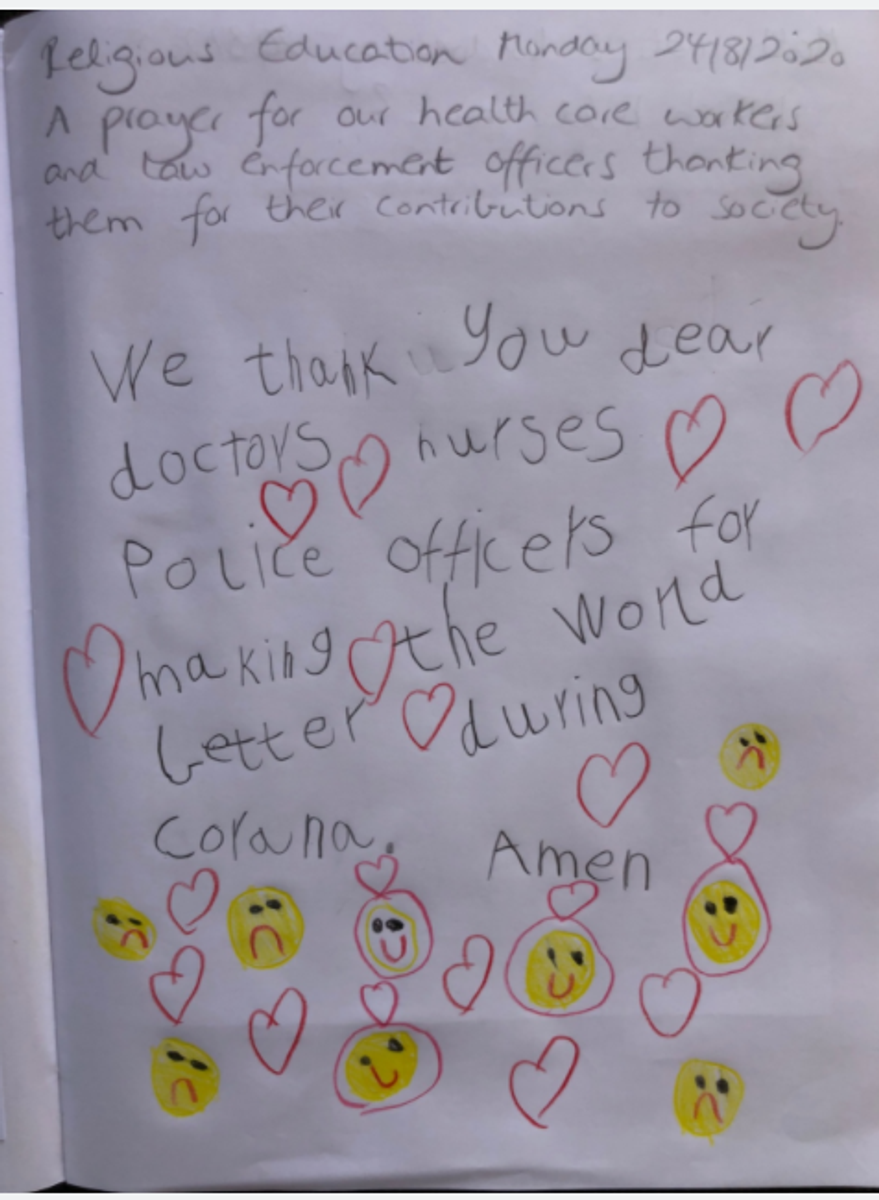 Religious Education Monday 24/8/2020
A prayer for our health care workers
and Law enforcement officers thanking
them for their contributions to society.
We thank you dear
doctors nurses
Police officers for
making the World
better during
Corana. Amen